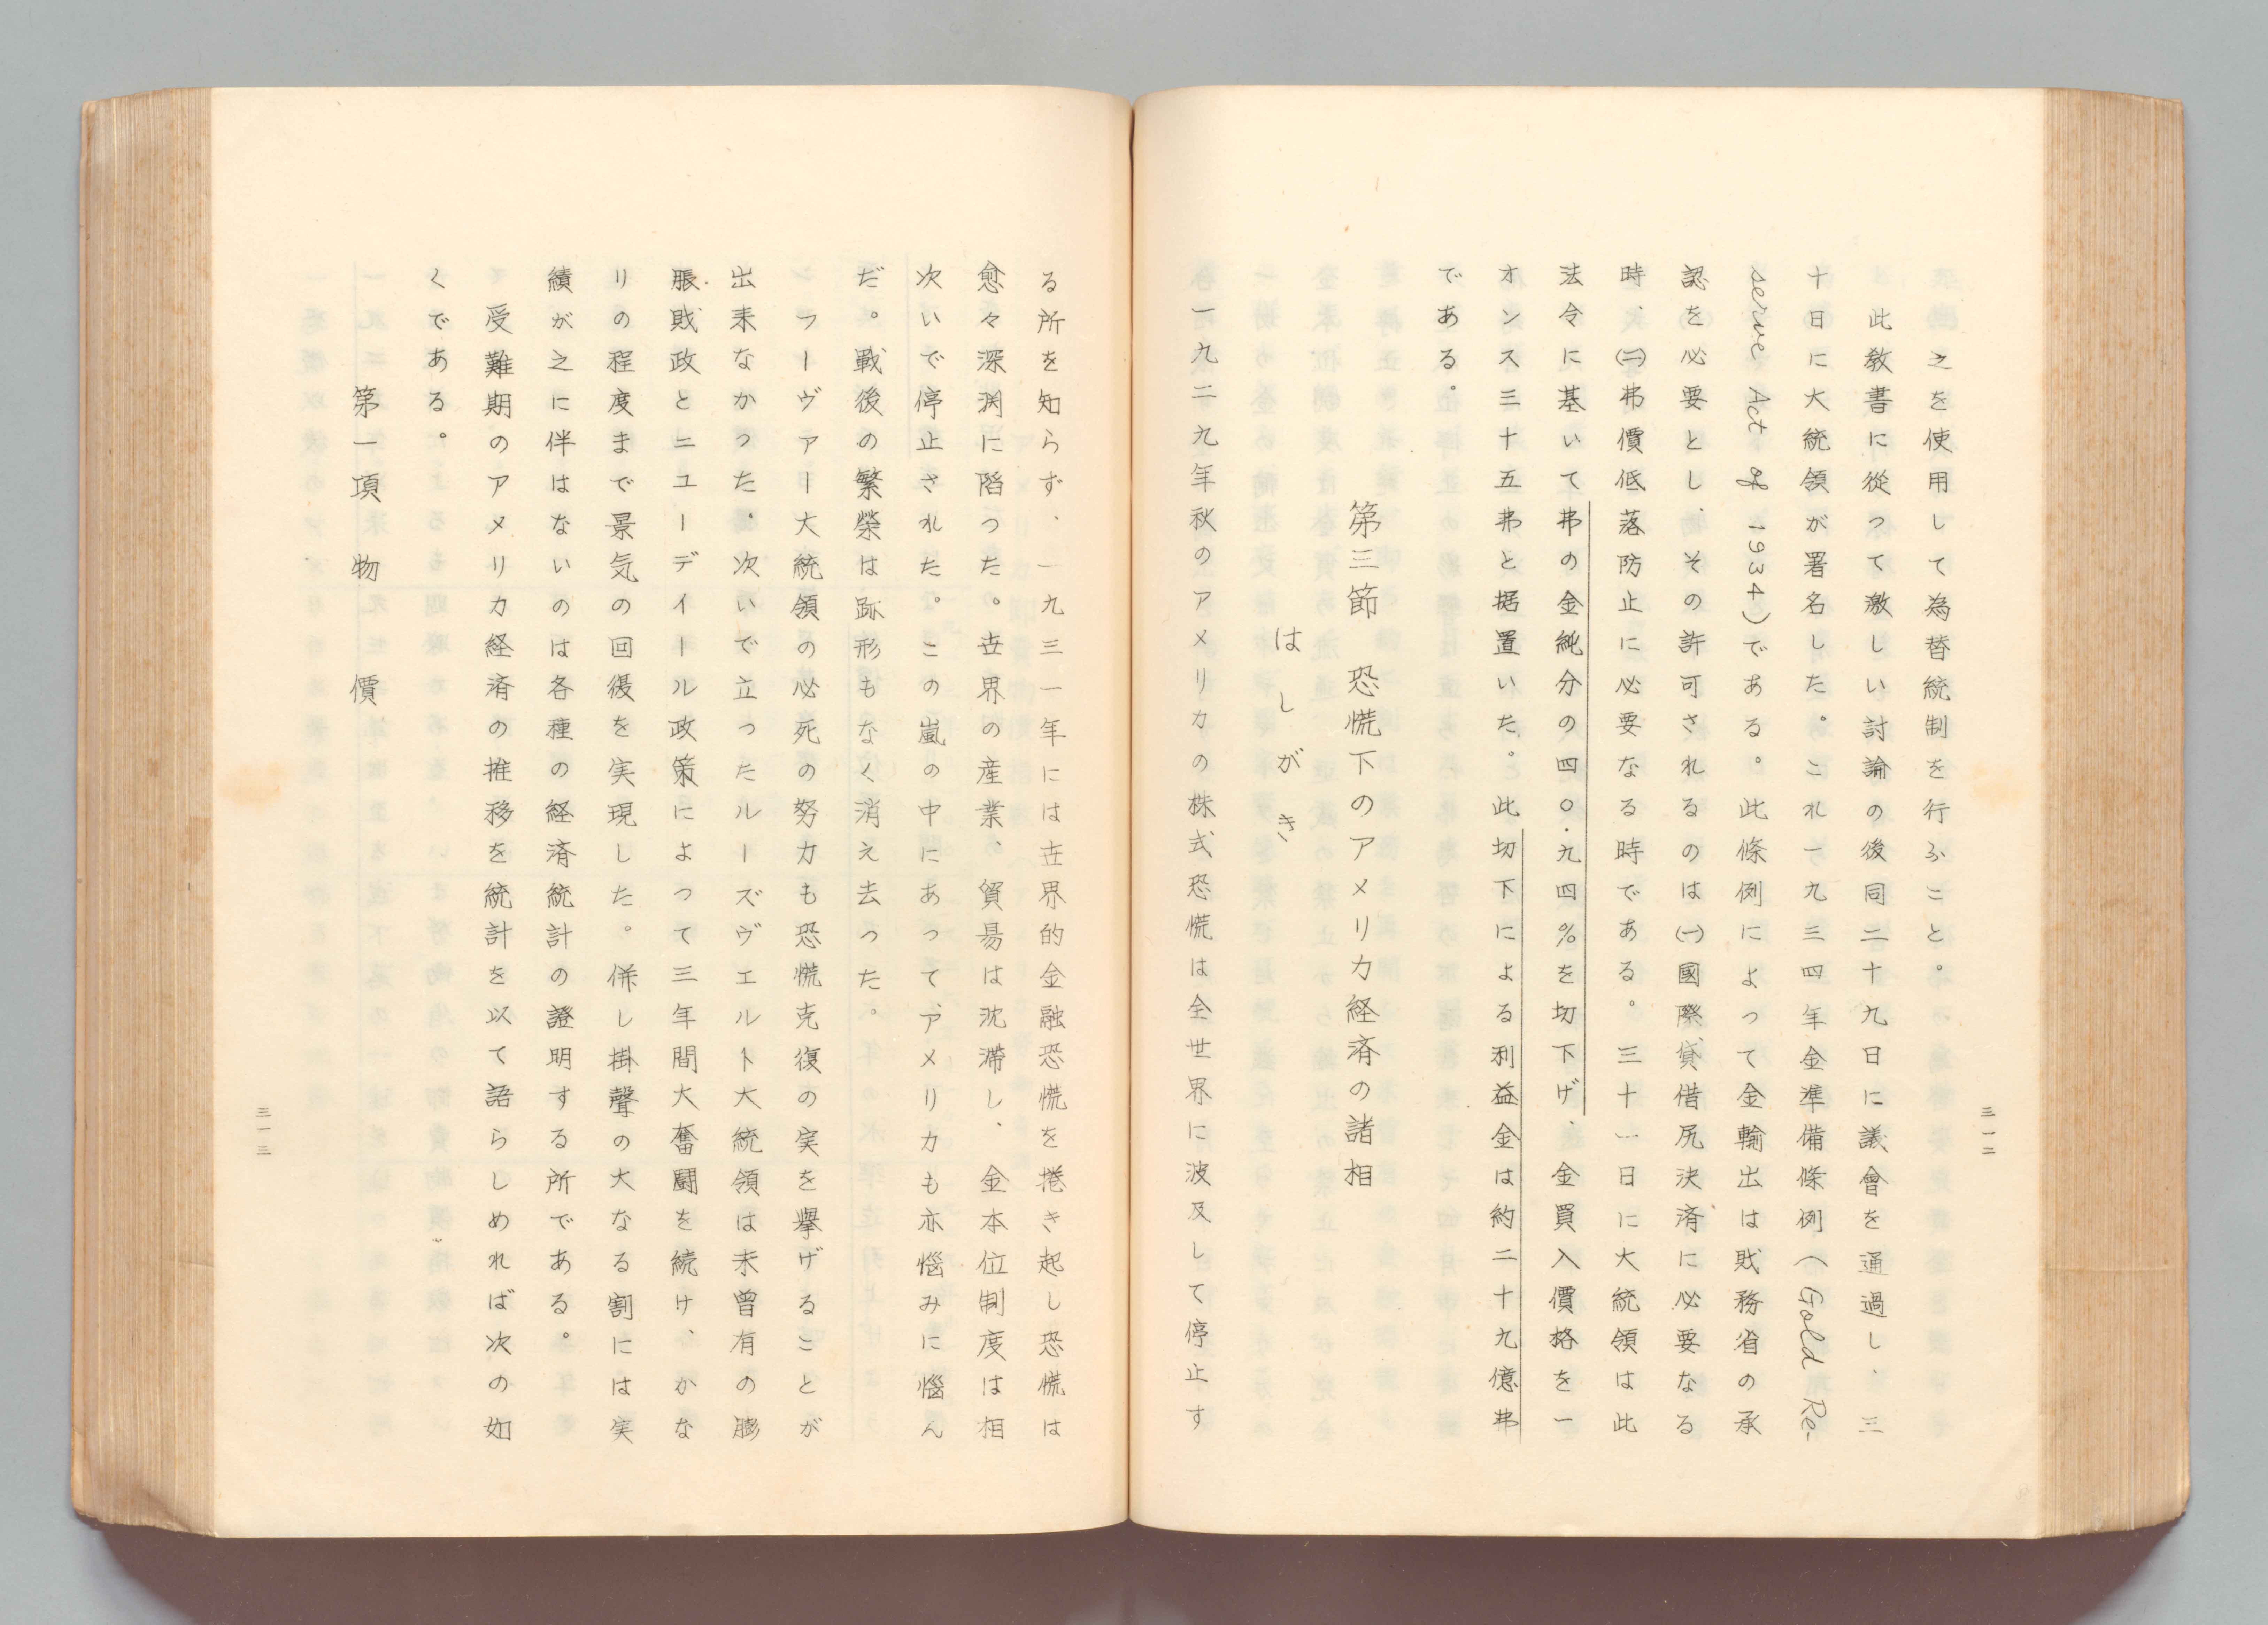 之を使用して為替統制を行ふこと。
此教書に從つて激しい討論の後同二十九日に議會を通過し、三
十日に大統領が署名した。これ一九三四年金準備條例(Gold Re-
serve Act of 1934)である。此條例によって金輸出は財務省の承
認を必要とし、その許可されるのは(一)國際貸借尻決済に必要なる
時、(二)弗價低落防止に必要なる時である。三十一日に大統領は此
法令に基いて弗の金純分の四〇・九四%を切下げ、金買入價格を一
オンス三十五弗と据置いた。此切下による利益金は約二十九億弗
である。
第三節 恐慌下のアメリカ経済の諸相
はしがき
一九二九年秋のアメリカの株式恐慌は全世界に波及して停止す
三一二
る所を知らず、一九三一年には世界的金融恐慌を捲き起し恐慌は
愈々深渕に陷つた。世界の産業、貿易は沈滞し、金本位制度は相
次いで停止された。この嵐の中にあって、アメリカも亦惱みに惱ん
だ。戰後の繁榮は跡形もなく消え去った。
フーヴァー大統領の必死の努力も恐慌克復の実を擧げることが
出来なかつた。次いで立ったルーズヴエルト大統領は未曾有の膨
脹財政とニューディール政策によって三年間大奮闘を続け、かな
りの程度まで景気の回復を実現した。併し掛聲の大なる割には実
績が之に伴はないのは各種の経済統計の證明する所である。
受難期のアメリカ経済の推移を統計を以て語らしめれば次の如
くである。
第一項 物價
三一三